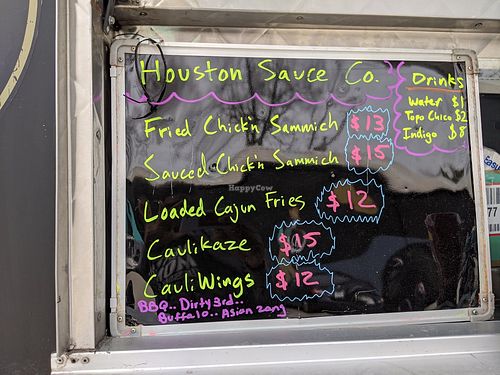 Houston Sauce Co.
Fried Chick'n Sammich $13
Sauced Chick'n Sammich $15
Loaded Cajun Fries $12
Caulikaze $15
CauliWings $12
BBQ.. Dirty3rd..
Buffalo.. Asian zang
Drinks
Water $1
Topo Chico $2
Indigo $8
HappyCow
Easy
77